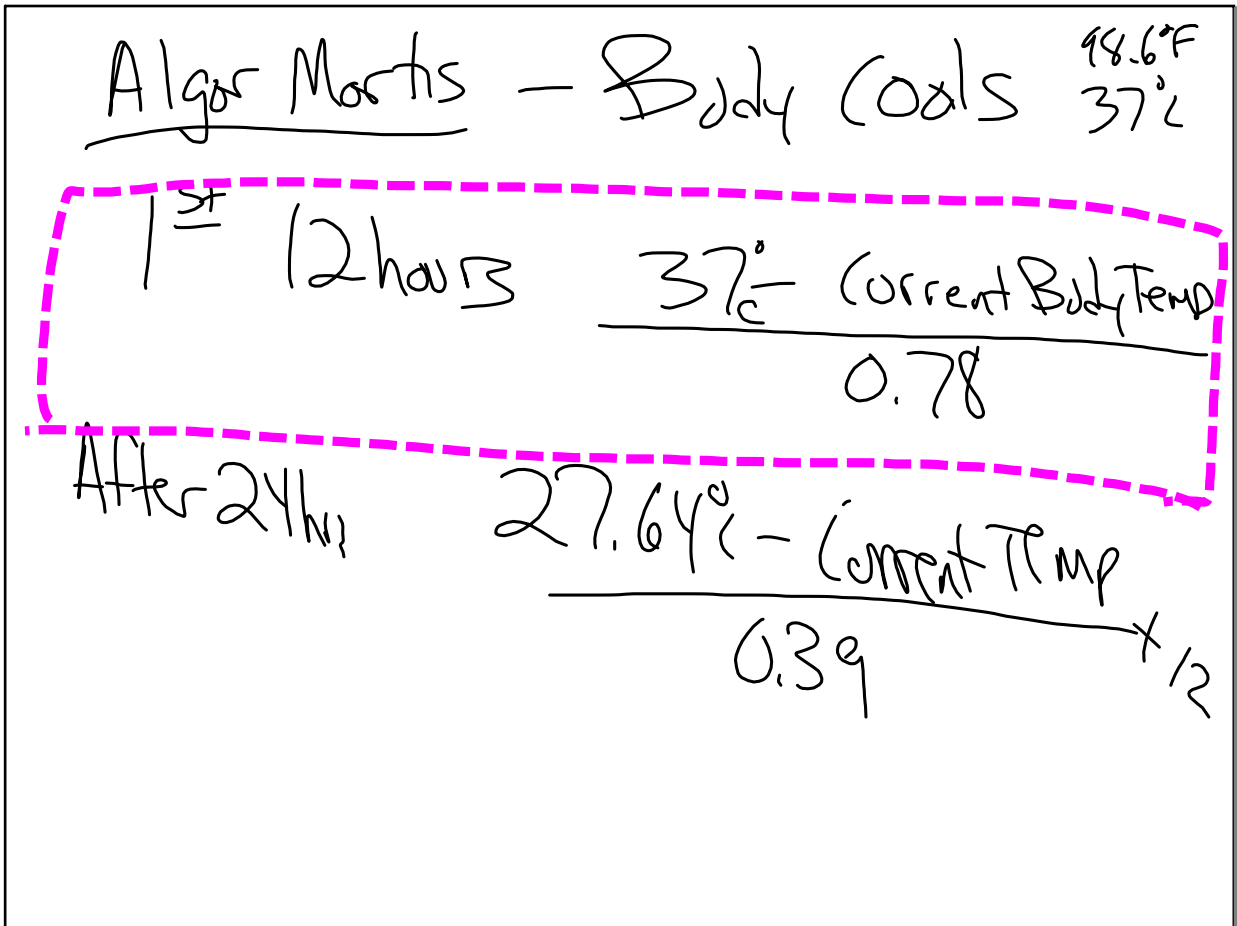 Algor Mortis – Body Cools 98.6°F
37°C
1st 12 hours 37°C – Current Body Temp
0.78
After 24 hrs 27.64°C – Current Temp
0.39 + 12